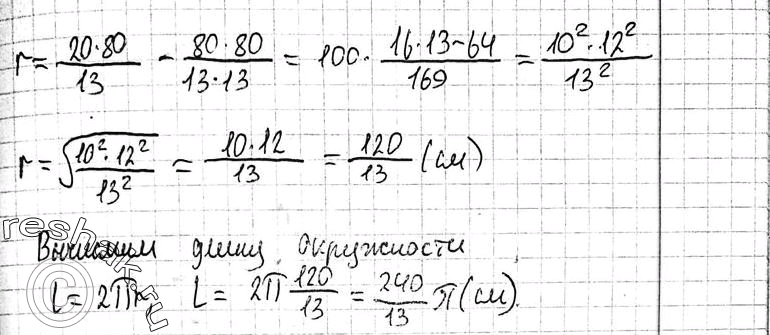 r = \frac{20·80}{13} - \frac{80·80}{13·13} = 100· \frac{16·13-64}{169} = \frac{10²·12²}{13²}
r = \sqrt{\frac{10²·12²}{13²}} = \frac{10·12}{13} = \frac{120}{13} (см)
Вычислим длину окружности
L = 2πr, L = 2π \frac{120}{13} = \frac{240}{13} π (см).
reshak.ru